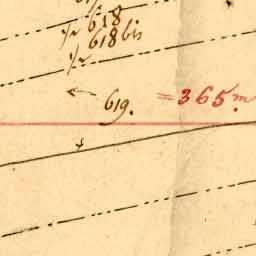 618
618 bis
619. = 365 m.